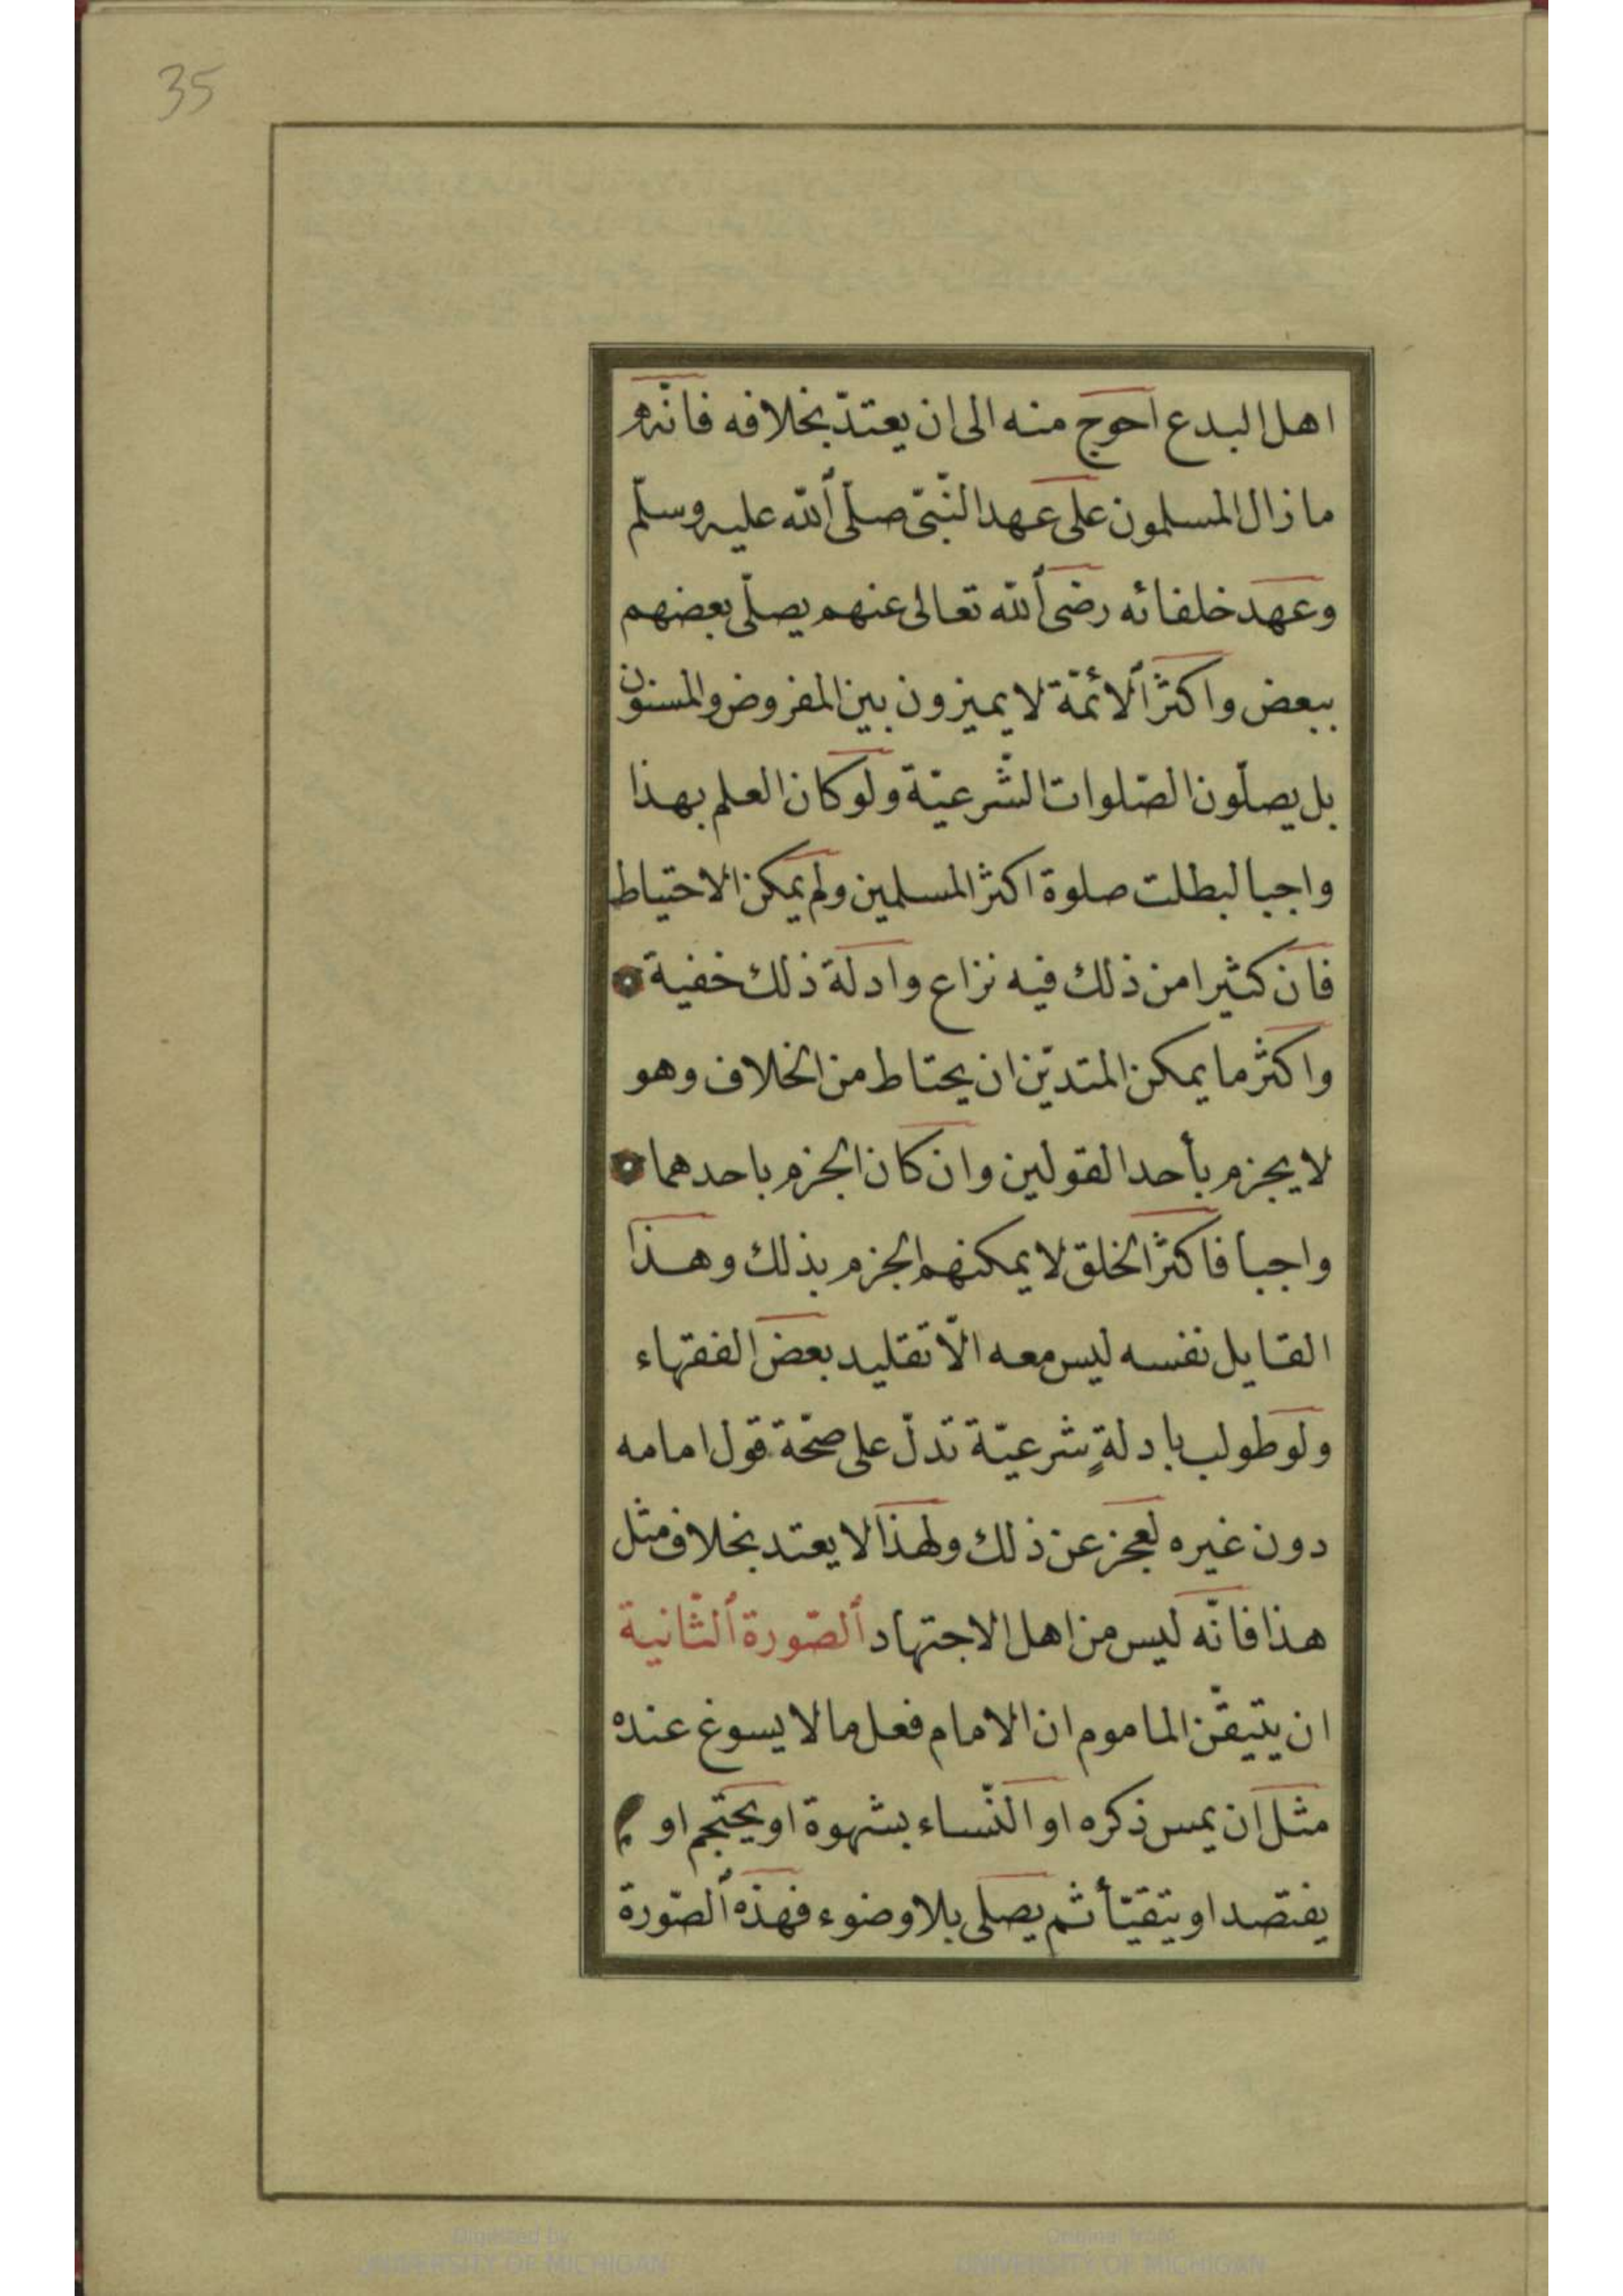 35
اهل البدع احوج منه الى ان يعتدّ بخلافه فانّه
ما زال المسلمون على عهد النّبيّ صلّى ٱللّه عليه وسلّم
وعهد خلفائه رضى ٱللّه تعالى عنهم يصلّى بعضهم
ببعض واكثر ٱلائمّة لا يميزون بين المفروض والمسنون
بل يصلّون الصّلوات الشّرعيّة ولو كان العلم بهذا
واجبا لبطلت صلوة اكثر المسلمين ولم يمكن الاحتياط
فان كثيرا من ذلك فيه نزاع وادلة ذلك خفية
واكثر ما يمكن المتديّن ان يحتاط من الخلاف وهو
لا يجزم بأحد القولين وان كان الجزم باحدهما
واجباً فاكثر الخلق لا يمكنهم الجزم بذلك وهذا
القايل نفسه ليس معه الّا تقليد بعض الفقهاء
ولو طولب بادلةٍ شرعيّة تدلّ على صحّة قول امامه
دون غيره لعجز عن ذلك ولهذا لا يعتد بخلاف مثل
هذا فانّه ليس من اهل الاجتهاد ٱلصّورة ٱلثّانية
ان يتيقّن الماموم ان الامام فعل ما لا يسوغ عنده
مثل ان يمس ذكره او النّساء بشهوة او يحتجم او
يفتصد او يتقيّأ ثم يصلى بلا وضوء فهذه ٱلصّورة
Digitized by
UNIVERSITY OF MICHIGAN
Original from
UNIVERSITY OF MICHIGAN